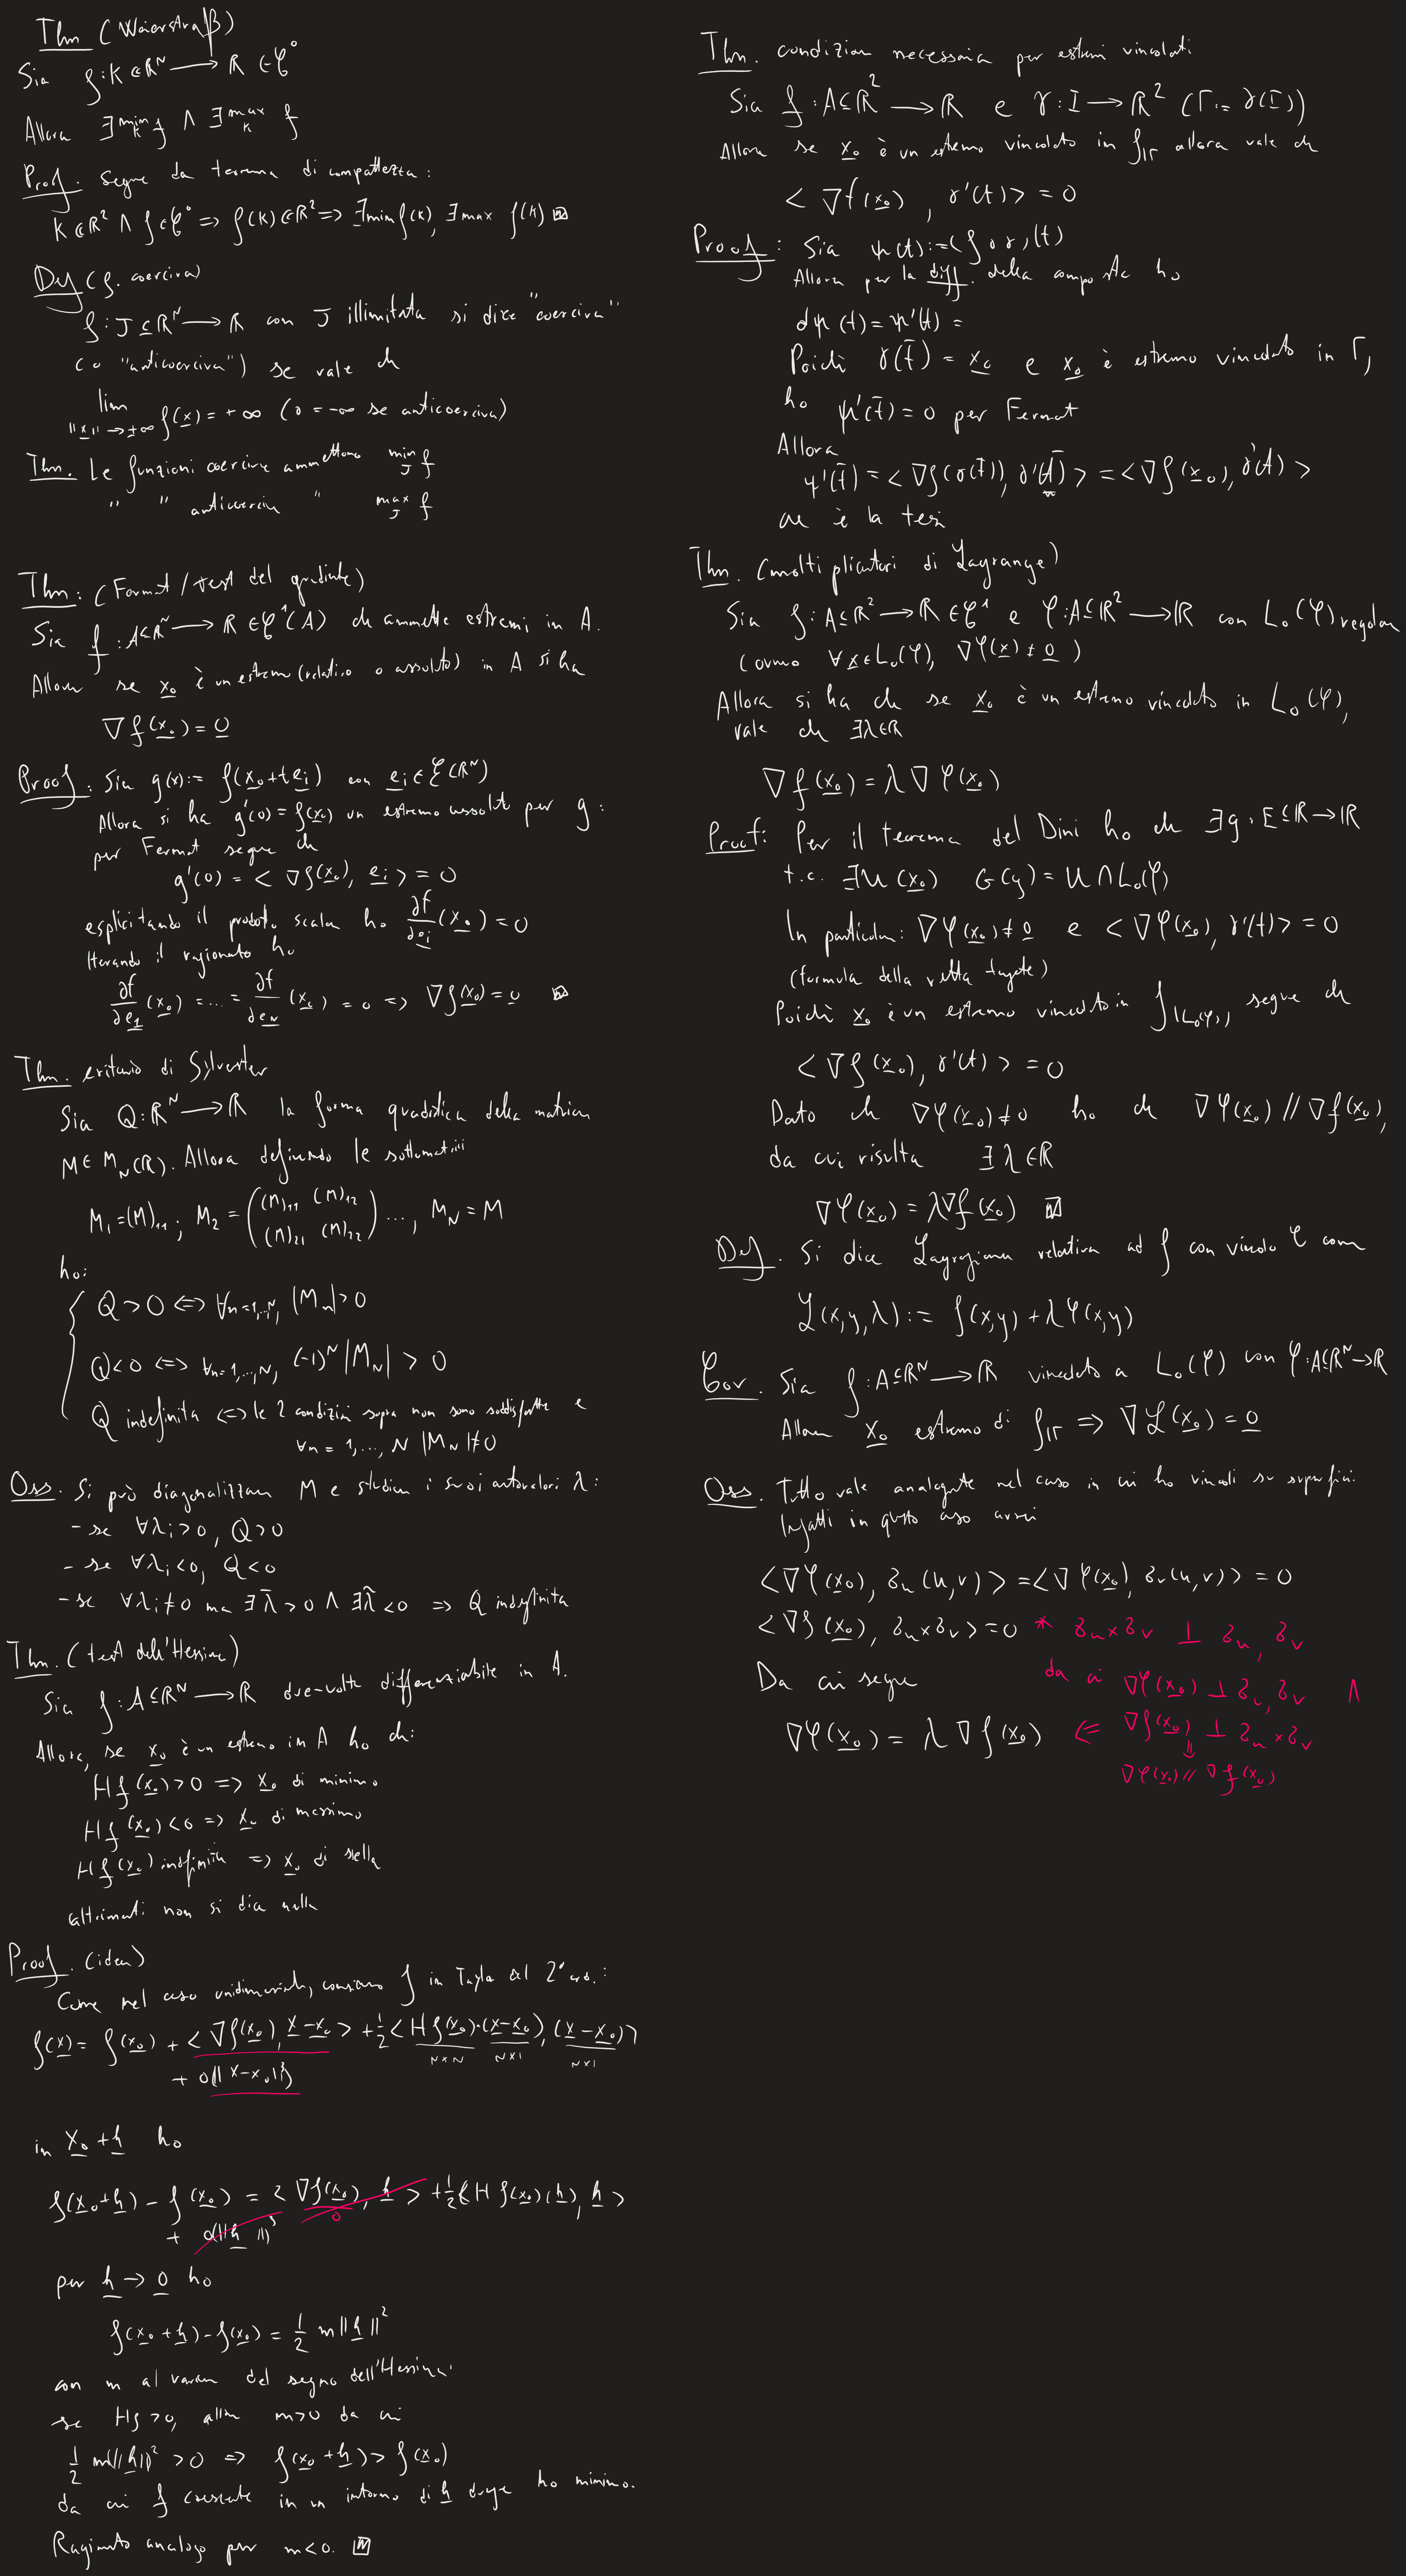 Thm (Weierstraß)
Sia f: K ⋐ ℝᴺ ⟶ ℝ ∈ 𝒞⁰
Allora ∃ min_K f ∧ ∃ max_K f
Proof. Segue da teorema di compattezza:
K ⋐ ℝ² ∧ f ∈ 𝒞⁰ => f(K) ⋐ ℝ² => ∃ min f(K), ∃ max f(K)
Def (f. coerciva)
f: J ⊆ ℝᴺ ⟶ ℝ con J illimitata si dice "coerciva"
(o "anticoerciva") se vale ch
lim_{"x" → ±∞} f(x) = +∞ (o = -∞ se anticoerciva)
Thm. Le funzioni coercive ammettono min_J f
" " anticoerciv " max_J f
Thm: (Fermat / test del gradiente)
Sia f: A ⊆ ℝᴺ ⟶ ℝ ∈ 𝒞¹(A) ch ammette estremi in A.
Allora se x₀ è un estremo (relativo o assoluto) in A si ha
∇f(x₀) = 0
Proof: Sia g(x) := f(x₀ + t eᵢ) con eᵢ ∈ ℰ(ℝᴺ)
Allora si ha g'(0) = f(x₀) un estremo assoluto per g:
per Fermat segue ch
g'(0) = < ∇f(x₀), eᵢ > = 0
esplicitando il prodotto scalar ho ∂f/∂eᵢ (x₀) = 0
Iterando il ragionato ho
∂f/∂e₁ (x₀) = ... = ∂f/∂e_N (x₀) = 0 => ∇f(x₀) = 0
Thm. criterio di Sylvester
Sia Q: ℝᴺ ⟶ ℝ la forma quadratica della matrice
M ∈ M_N(ℝ). Allora definendo le sottomatrici
M₁ = (M)₁₁; M₂ = ((M)₁₁ (M)₁₂
(M)₂₁ (M)₂₂) ..., M_N = M
ho:
Q > 0 <=> ∀n=1,...,N, |Mₙ| > 0
Q < 0 <=> ∀n=1,...,N, (-1)ᴺ |M_N| > 0
Q indefinita <=> le 2 condizioni sopra non sono soddisfatte e
∀n = 1, ..., N |M_N| ≠ 0
Oss. Si può diagonalizzare M e studiare i suoi autovalori λ:
- se ∀λᵢ > 0, Q > 0
- se ∀λᵢ < 0, Q < 0
- se ∀λᵢ ≠ 0 ma ∃λ̄ > 0 ∧ ∃λ̃ < 0 => Q indefinita
Thm. (test dell'Hessiana)
Sia f: A ⊆ ℝᴺ ⟶ ℝ due-volte differenziabile in A.
Allora, se x₀ è un estremo in A ho ch:
Hf(x₀) > 0 => x₀ di minimo
Hf(x₀) < 0 => x₀ di massimo
Hf(x₀) indefinita => x₀ di sella
altrimenti non si dice nulla
Proof. (idea)
Come nel caso unidimensionale, consideriamo f in Taylor al 2° ord.:
f(x) = f(x₀) + < ∇f(x₀), x - x₀ > + ½ < Hf(x₀)·(x-x₀), (x-x₀) >
N×N N×1 N×1
+ o(||x-x₀||³)
in x₀ + h ho
f(x₀+h) - f(x₀) = < ∇f(x₀), h > + ½ < Hf(x₀)(h), h >
0
+ o(||h||)³
per h → 0 ho
f(x₀+h) - f(x₀) = ½ m ||h||²
con m al variare del segno dell'Hessiana:
se Hf > 0, allora m > 0 da cui
½ m ||h||² > 0 => f(x₀+h) > f(x₀)
da cui f crescente in un intorno di h dunque ho minimo.
Ragionato analogo per m < 0.
Thm. condizione necessaria per estremi vincolati
Sia f: A ⊆ ℝ² ⟶ ℝ e γ: I ⟶ ℝ² (Γ := γ(I))
Allora se x₀ è un estremo vincolato in f|Γ allora vale ch
< ∇f(x₀), γ'(t) > = 0
Proof: Sia ψ(t) := (f ∘ γ)(t)
Allora per la diff. della composta ho
dψ(t) = ψ'(t) =
Poichè γ(t̄) = x₀ e x₀ è estremo vincolato in Γ,
ho ψ'(t̄) = 0 per Fermat
Allora
ψ'(t̄) = < ∇f(γ(t̄)), γ'(t̄) > = < ∇f(x₀), γ'(t) >
che è la tesi
Thm. (moltiplicatori di Lagrange)
Sia f: A ⊆ ℝ² ⟶ ℝ ∈ 𝒞¹ e φ: A ⊆ ℝ² ⟶ ℝ con L₀(φ) regolare
(ovvero ∀x ∈ L₀(φ), ∇φ(x) ≠ 0)
Allora si ha ch se x₀ è un estremo vincolato in L₀(φ),
vale ch ∃λ∈ℝ
∇f(x₀) = λ ∇φ(x₀)
Proof: Per il teorema del Dini ho ch ∃g: E ⊆ ℝ → ℝ
t.c. ∃U(x₀) G(g) = U ∩ L₀(φ)
In particolar: ∇φ(x₀) ≠ 0 e < ∇φ(x₀), γ'(t) > = 0
(formula della retta tangente)
Poichè x₀ è un estremo vincolato in f|L₀(φ), segue ch
< ∇f(x₀), γ'(t) > = 0
Dato ch ∇φ(x₀) ≠ 0 ho ch ∇φ(x₀) // ∇f(x₀),
da cui risulta ∃λ∈ℝ
∇φ(x₀) = λ∇f(x₀)
Def. Si dice Lagrangiana relativa ad f con vincolo φ come
ℒ(x,y,λ) := f(x,y) + λφ(x,y)
Cor. Sia f: A ⊆ ℝᴺ ⟶ ℝ vincolato a L₀(φ) con φ: A ⊆ ℝᴺ → ℝ
Allora x₀ estremo di f|Γ => ∇ℒ(x₀) = 0
Oss. Tutto vale analogamente nel caso in cui ho vincoli su superfici.
Infatti in questo caso avrei
< ∇φ(x₀), σᵤ(u,v) > = < ∇φ(x₀), σᵥ(u,v) > = 0
< ∇f(x₀), σᵤ×σᵥ > = 0 * σᵤ×σᵥ ⊥ σᵤ, σᵥ
Da cui segue da cui ∇φ(x₀) ⊥ σᵤ, σᵥ ∧
∇φ(x₀) = λ ∇f(x₀) <= ∇f(x₀) ⊥ σᵤ×σᵥ
⇓
∇φ(x₀) // ∇f(x₀)